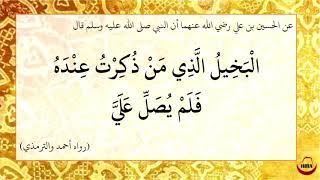 عن الحسين بن علي رضي الله عنهما أن النبي صلى الله عليه وسلم قال
الْبَخِيلُ الَّذِي مَنْ ذُكِرْتُ عِنْدَهُ
فَلَمْ يُصَلِّ عَلَيَّ
(رواه أحمد والترمذي)